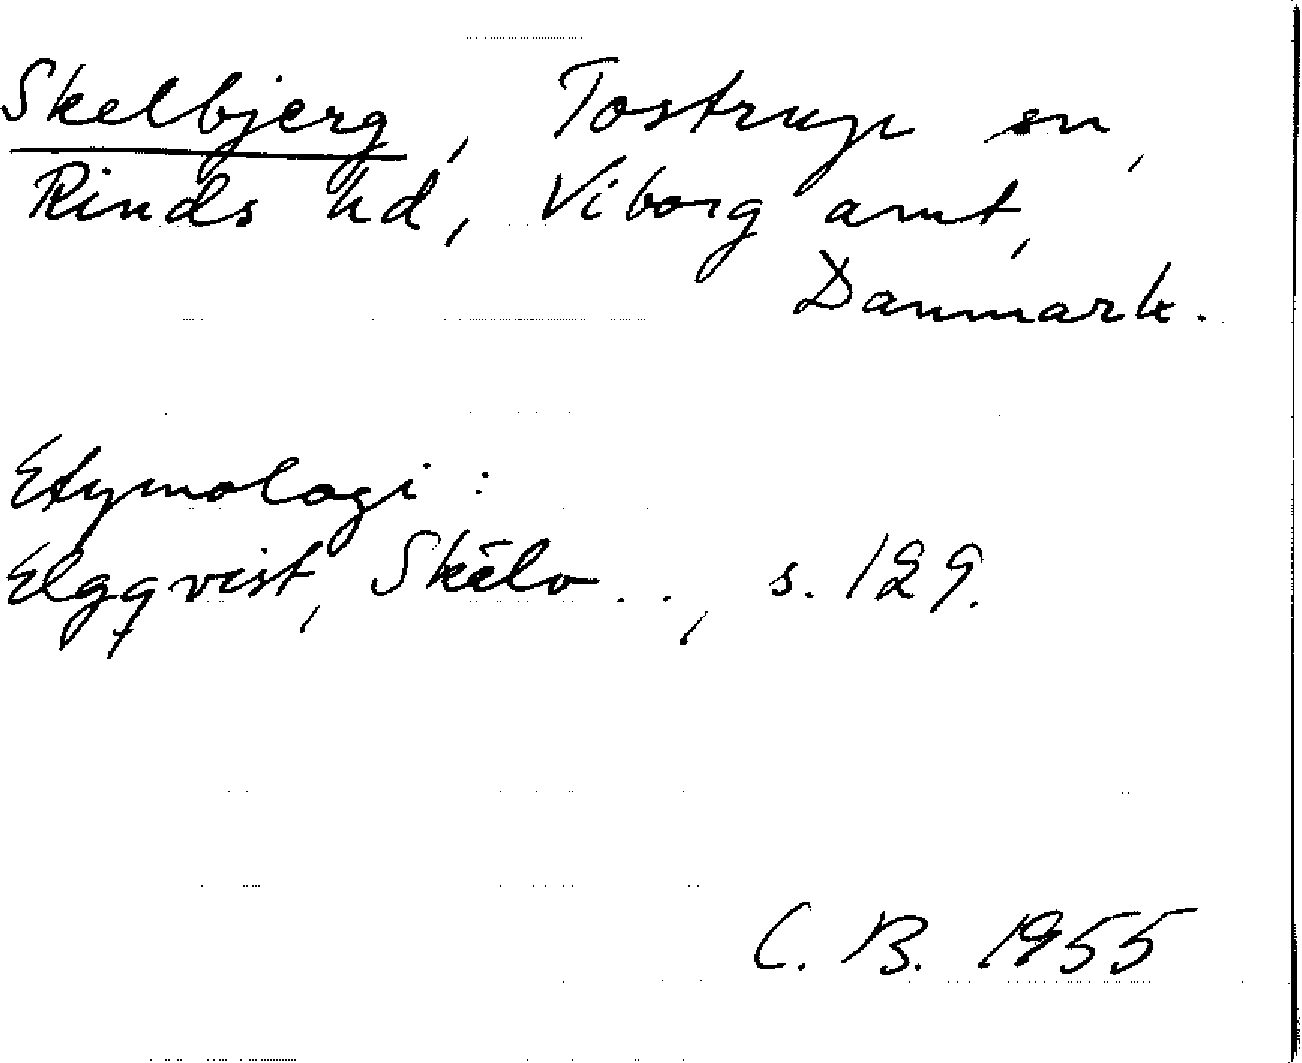 Skelbjerg, Tostrup sn,
Rinds hd, Viborg amt,
Danmark.
Etymologi:
Elgqvist, Skälv..., s. 129.
C. B. 1955